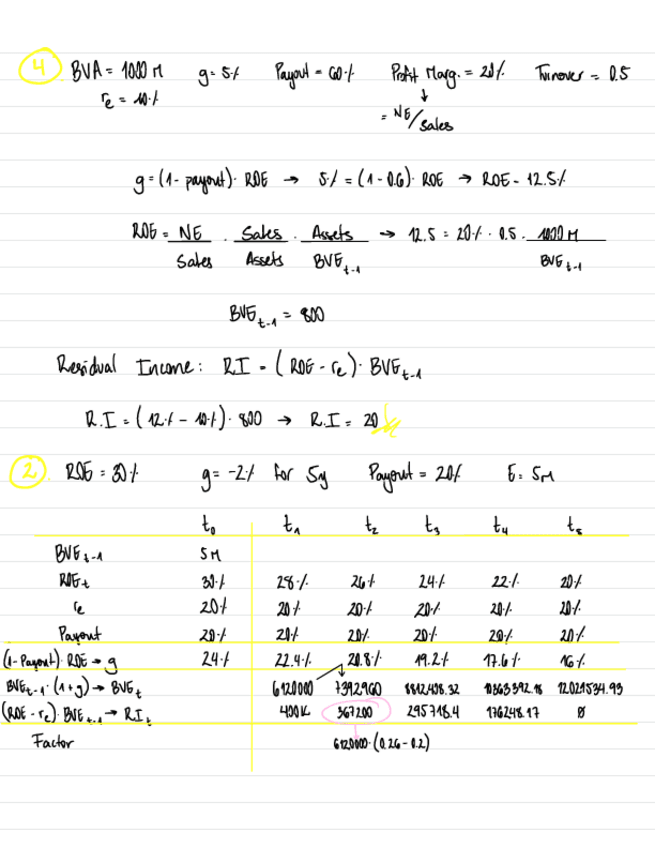 4 BVA = 1000 M g = 5% Payout = 60% Profit Marg. = 20% Turnover = 0.5
re = 10% ↓
= NE/Sales
g = (1 - payout) · ROE → 5% = (1 - 0.6) · ROE → ROE = 12.5%
ROE = NE/Sales · Sales/Assets · Assets/BVE t-1 → 12.5 = 20% · 0.5 · 1000 M/BVE t-1
BVE t-1 = 800
Residual Income: R.I = (ROE - re) · BVE t-1
R.I = (12% - 10%) · 800 → R.I = 20
2 ROE = 30% g = -2% for 5y Payout = 20% E: 5M
t0 t1 t2 t3 t4 t5
BVE t-1 5M
ROE t 30% 28% 26% 24% 22% 20%
re 20% 20% 20% 20% 20% 20%
Payout 20% 20% 20% 20% 20% 20%
(1-Payout) · ROE → g 24% 22.4% 20.8% 19.2% 17.6% 16%
BVE t-1 · (1+g) → BVE t 6120000 7392960 8812408.32 10363392.18 12021534.93
(ROE - re) · BVE t-1 → RI t 400K 367200 295718.4 176248.17 0
Factor 6120000 · (0.26 - 0.2)